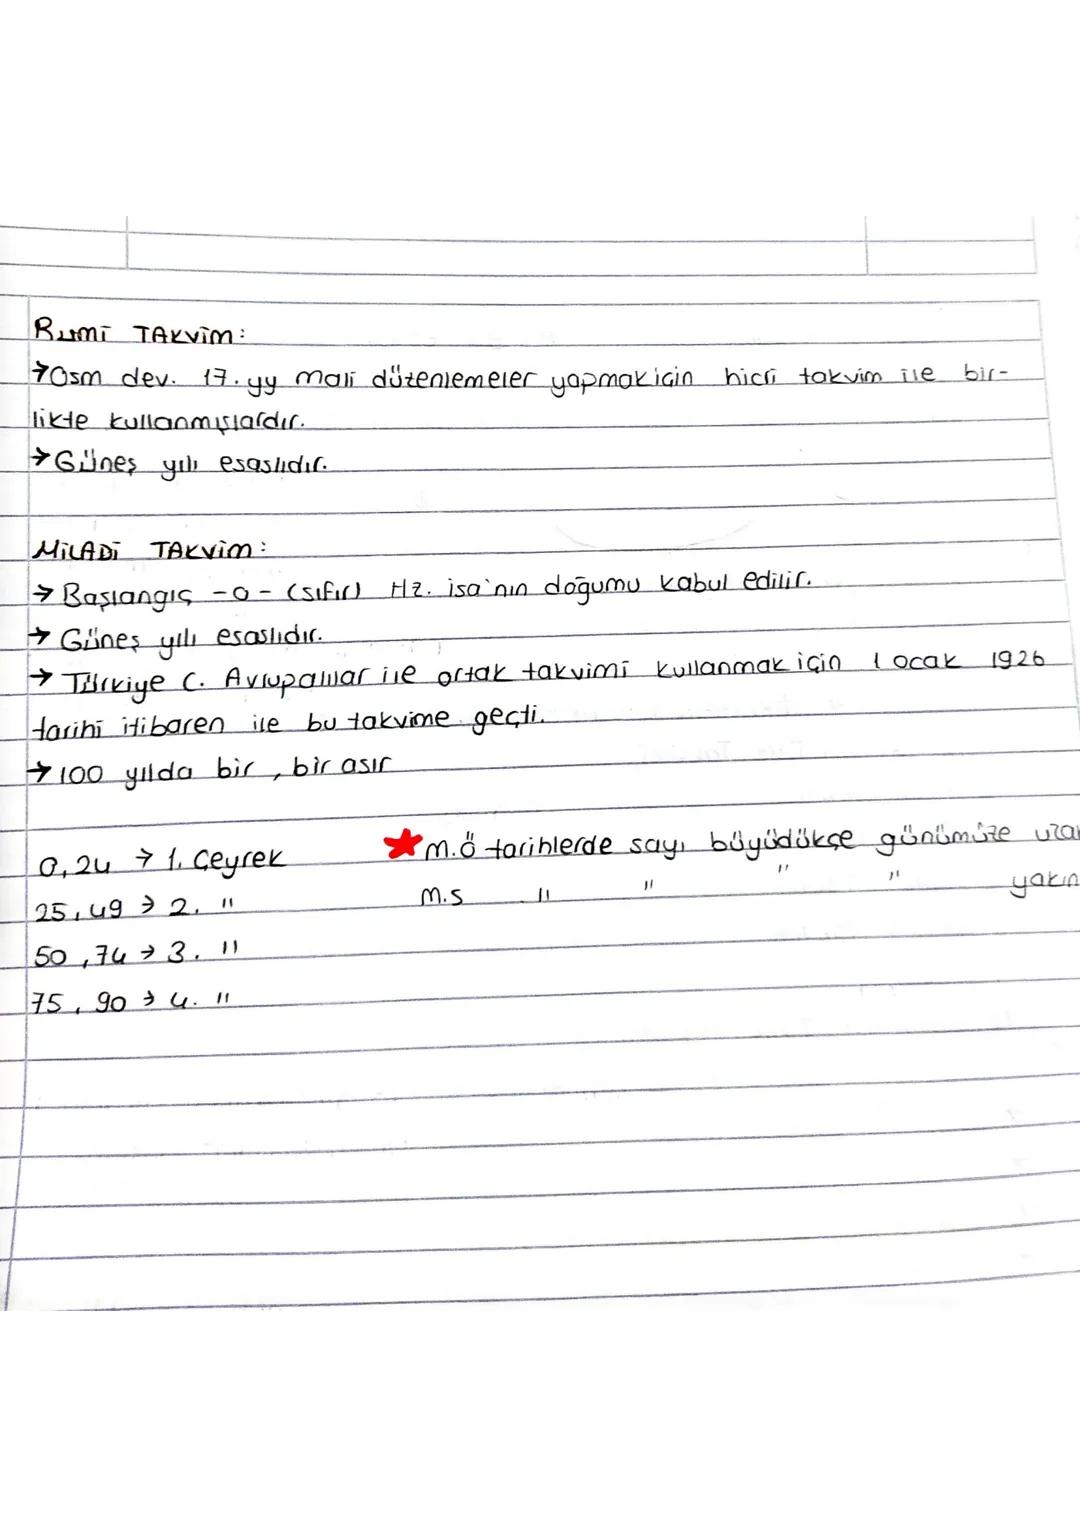 Rumi TAKvim:
→Osm dev. 17.yy mali düzenlemeler yapmak için hicri takvim ile bir-
likte kullanmışlardır.
→Güneş yılı esaslıdır.
MiLADi TAKvim:
→ Başlangıç -0- (sıfır) Hz. isa'nın doğumu kabul edilir.
→ Güneş yılı esaslıdır.
→ Türkiye C. Avrupalılar ile ortak takvimi kullanmak için 1 ocak 1926
tarihi itibaren ile bu takvime geçti.
→ 100 yılda bir, bir asır
0,24 → 1. Çeyrek
25,49 → 2. "
50,74 → 3. "
75,90 → 4. "
★ m.ö tarihlerde sayı büyüdükçe günümüze uzak
m.s " " " " yakın